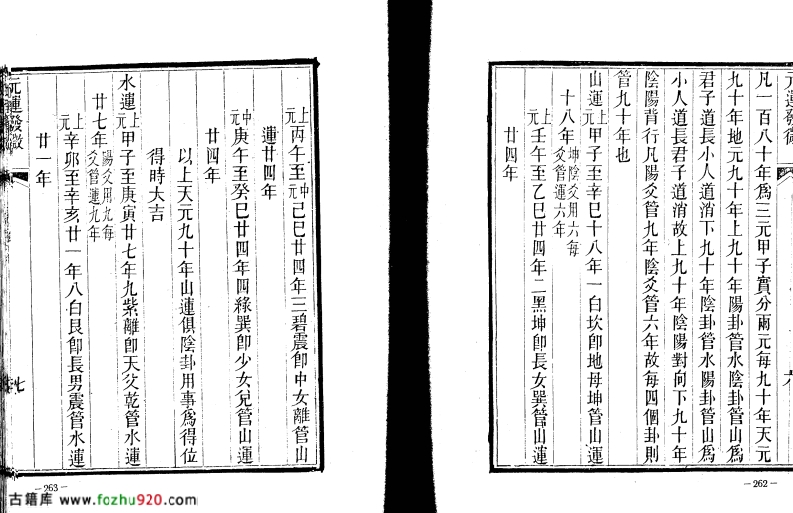 元運發微
六
凡一百八十年爲三元甲子實分兩元每九十年天元
九十年地元九十年上九十年陽卦管水陰卦管山爲
君子道長小人道消下九十年陰卦管水陽卦管山爲
小人道長君子道消故上九十年陰陽對向下九十年
陰陽背行凡陽爻管九年陰爻管六年故每四個卦則
管九十年也
山運上元甲子至辛巳十八年一白坎卽地母坤管山運
十八年坤陰爻用六每爻管運六年
上元壬午至乙巳廿四年二黑坤卽長女巽管山運
廿四年
-262-
上元丙午至中元己巳廿四年三碧震卽中女離管山
運廿四年
中元庚午至癸巳廿四年四綠巽卽少女兌管山運
廿四年
以上天元九十年山運俱陰卦用事爲得位
得時大吉
水運上元甲子至庚寅廿七年九紫離卽天父乾管水運
廿七年陽爻用九每爻管運九年
上元辛卯至辛亥廿一年八白艮卽長男震管水運
廿一年
元運發微
七
-263-
古籍库 www.fozhu920.com